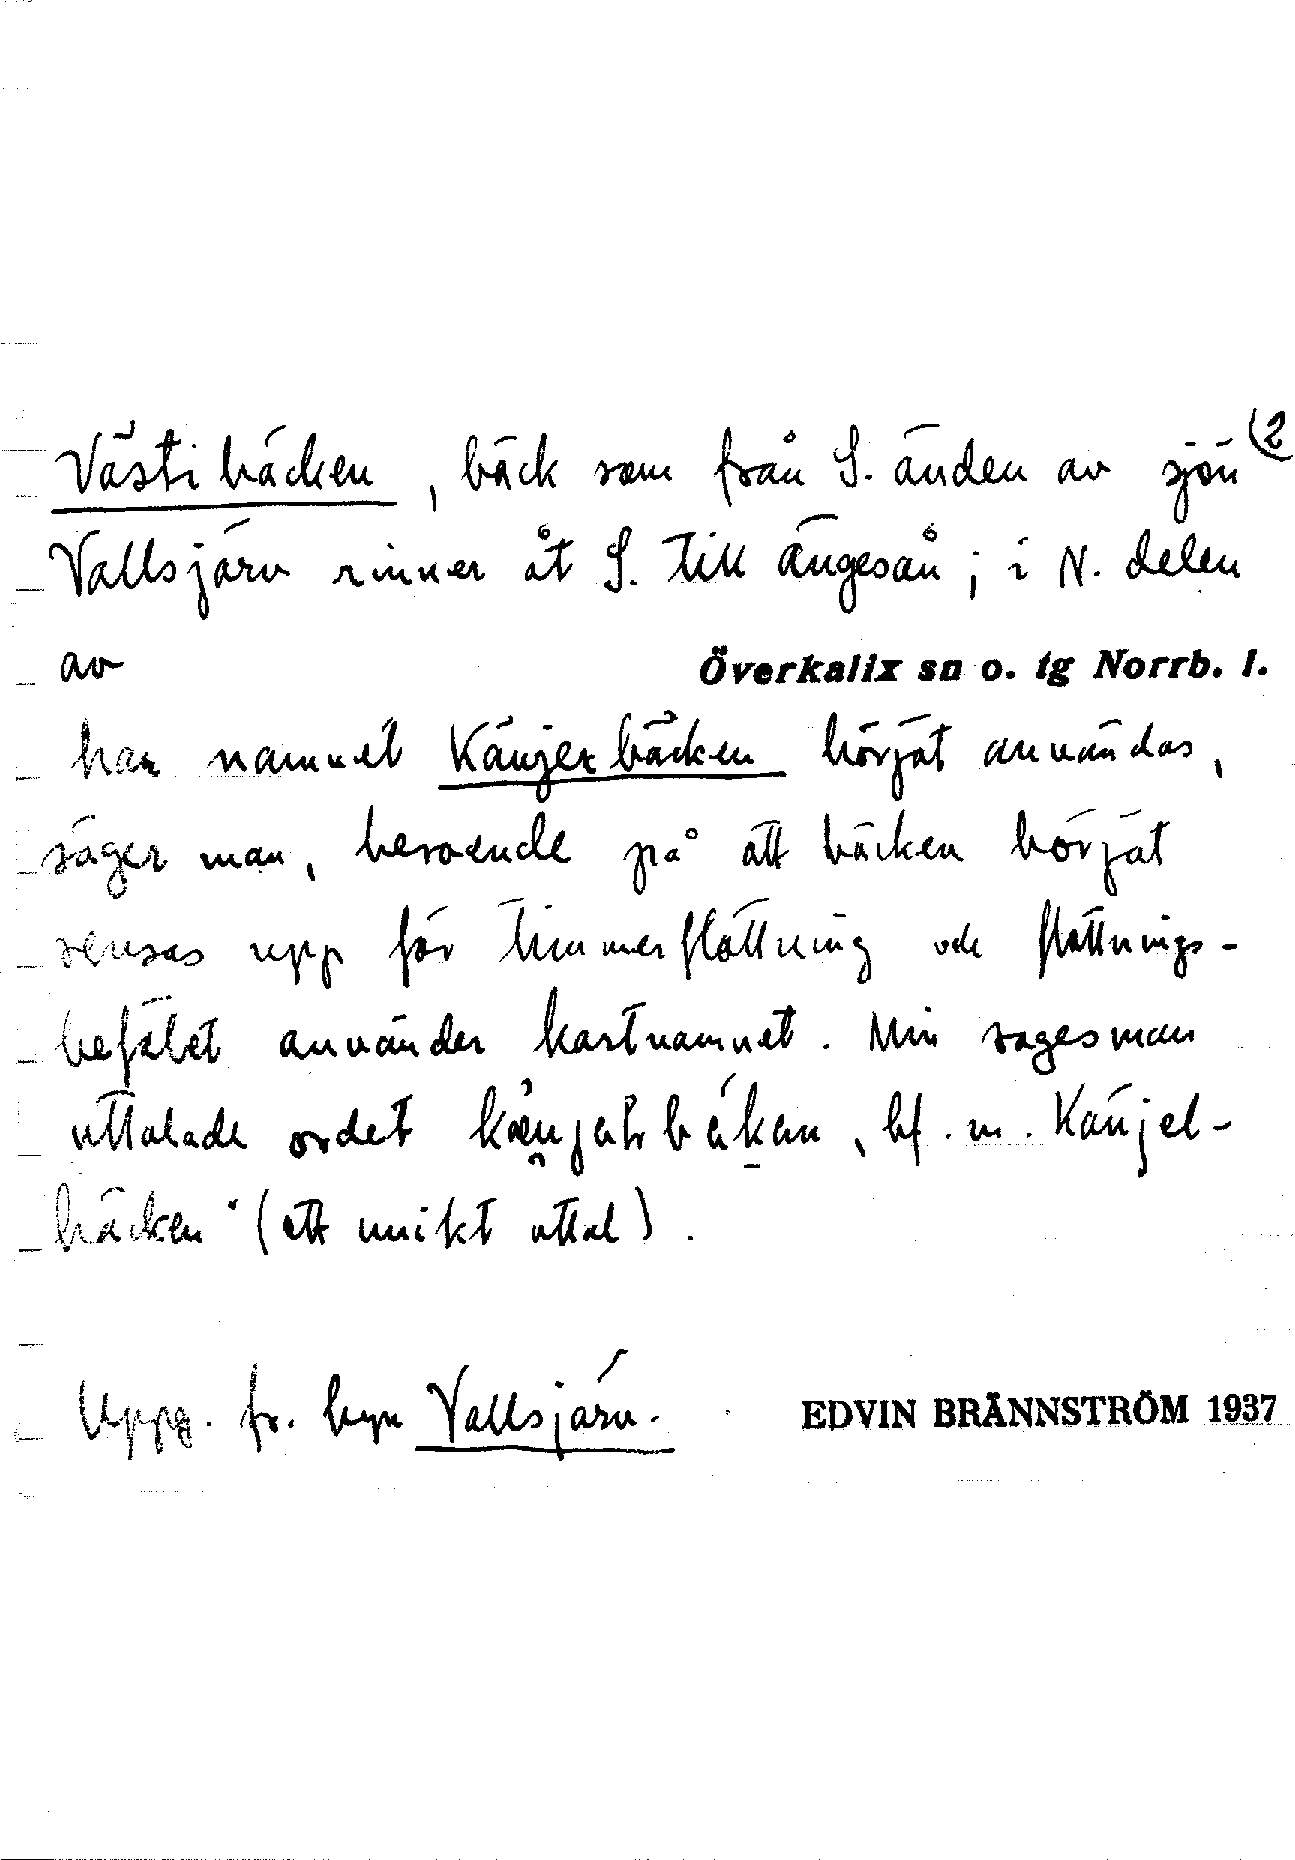 Västibäcken, bäck som från S. änden av sjön (2
Vallsjärv rinner åt S. till Ängesån; i N. delen
av Överkalix sn o. tg Norrb. l.
har namnet Känjerbäcken börjat användas,
säger man, beroende på att bäcken börjat
rensas upp för timmerflottning och flottnings-
befälet använder kartnamnet. Min sagesman
uttalade ordet , bf. m. Känjel-
bäcken" (ett unikt uttal).
Uppg. fr. byn Vallsjärv. EDVIN BRÄNNSTRÖM 1937